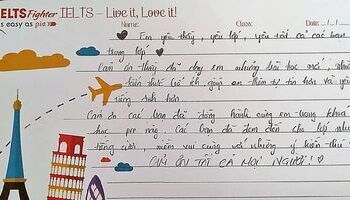 IELTS Fighter IELTS – Live it, Love it!
as easy as pie
Name: Class: Date: .../.../...
Em yêu thầy, yêu lớp, yêu tất cả các bạn
trong lớp
Cảm ơn thầy đã dạy em những bài học mới, những
kiến thức bổ ích, giúp em thêm tự tin hơn và yêu
tiếng Anh hơn.
Cảm ơn các bạn đã đồng hành cùng em trong khoá
học pre này. Các bạn đã đem đến cho lớp những
tiếng cười, niềm vui cùng với những ý kiến thú
CẢM ƠN TẤT CẢ MỌI NGƯỜI!